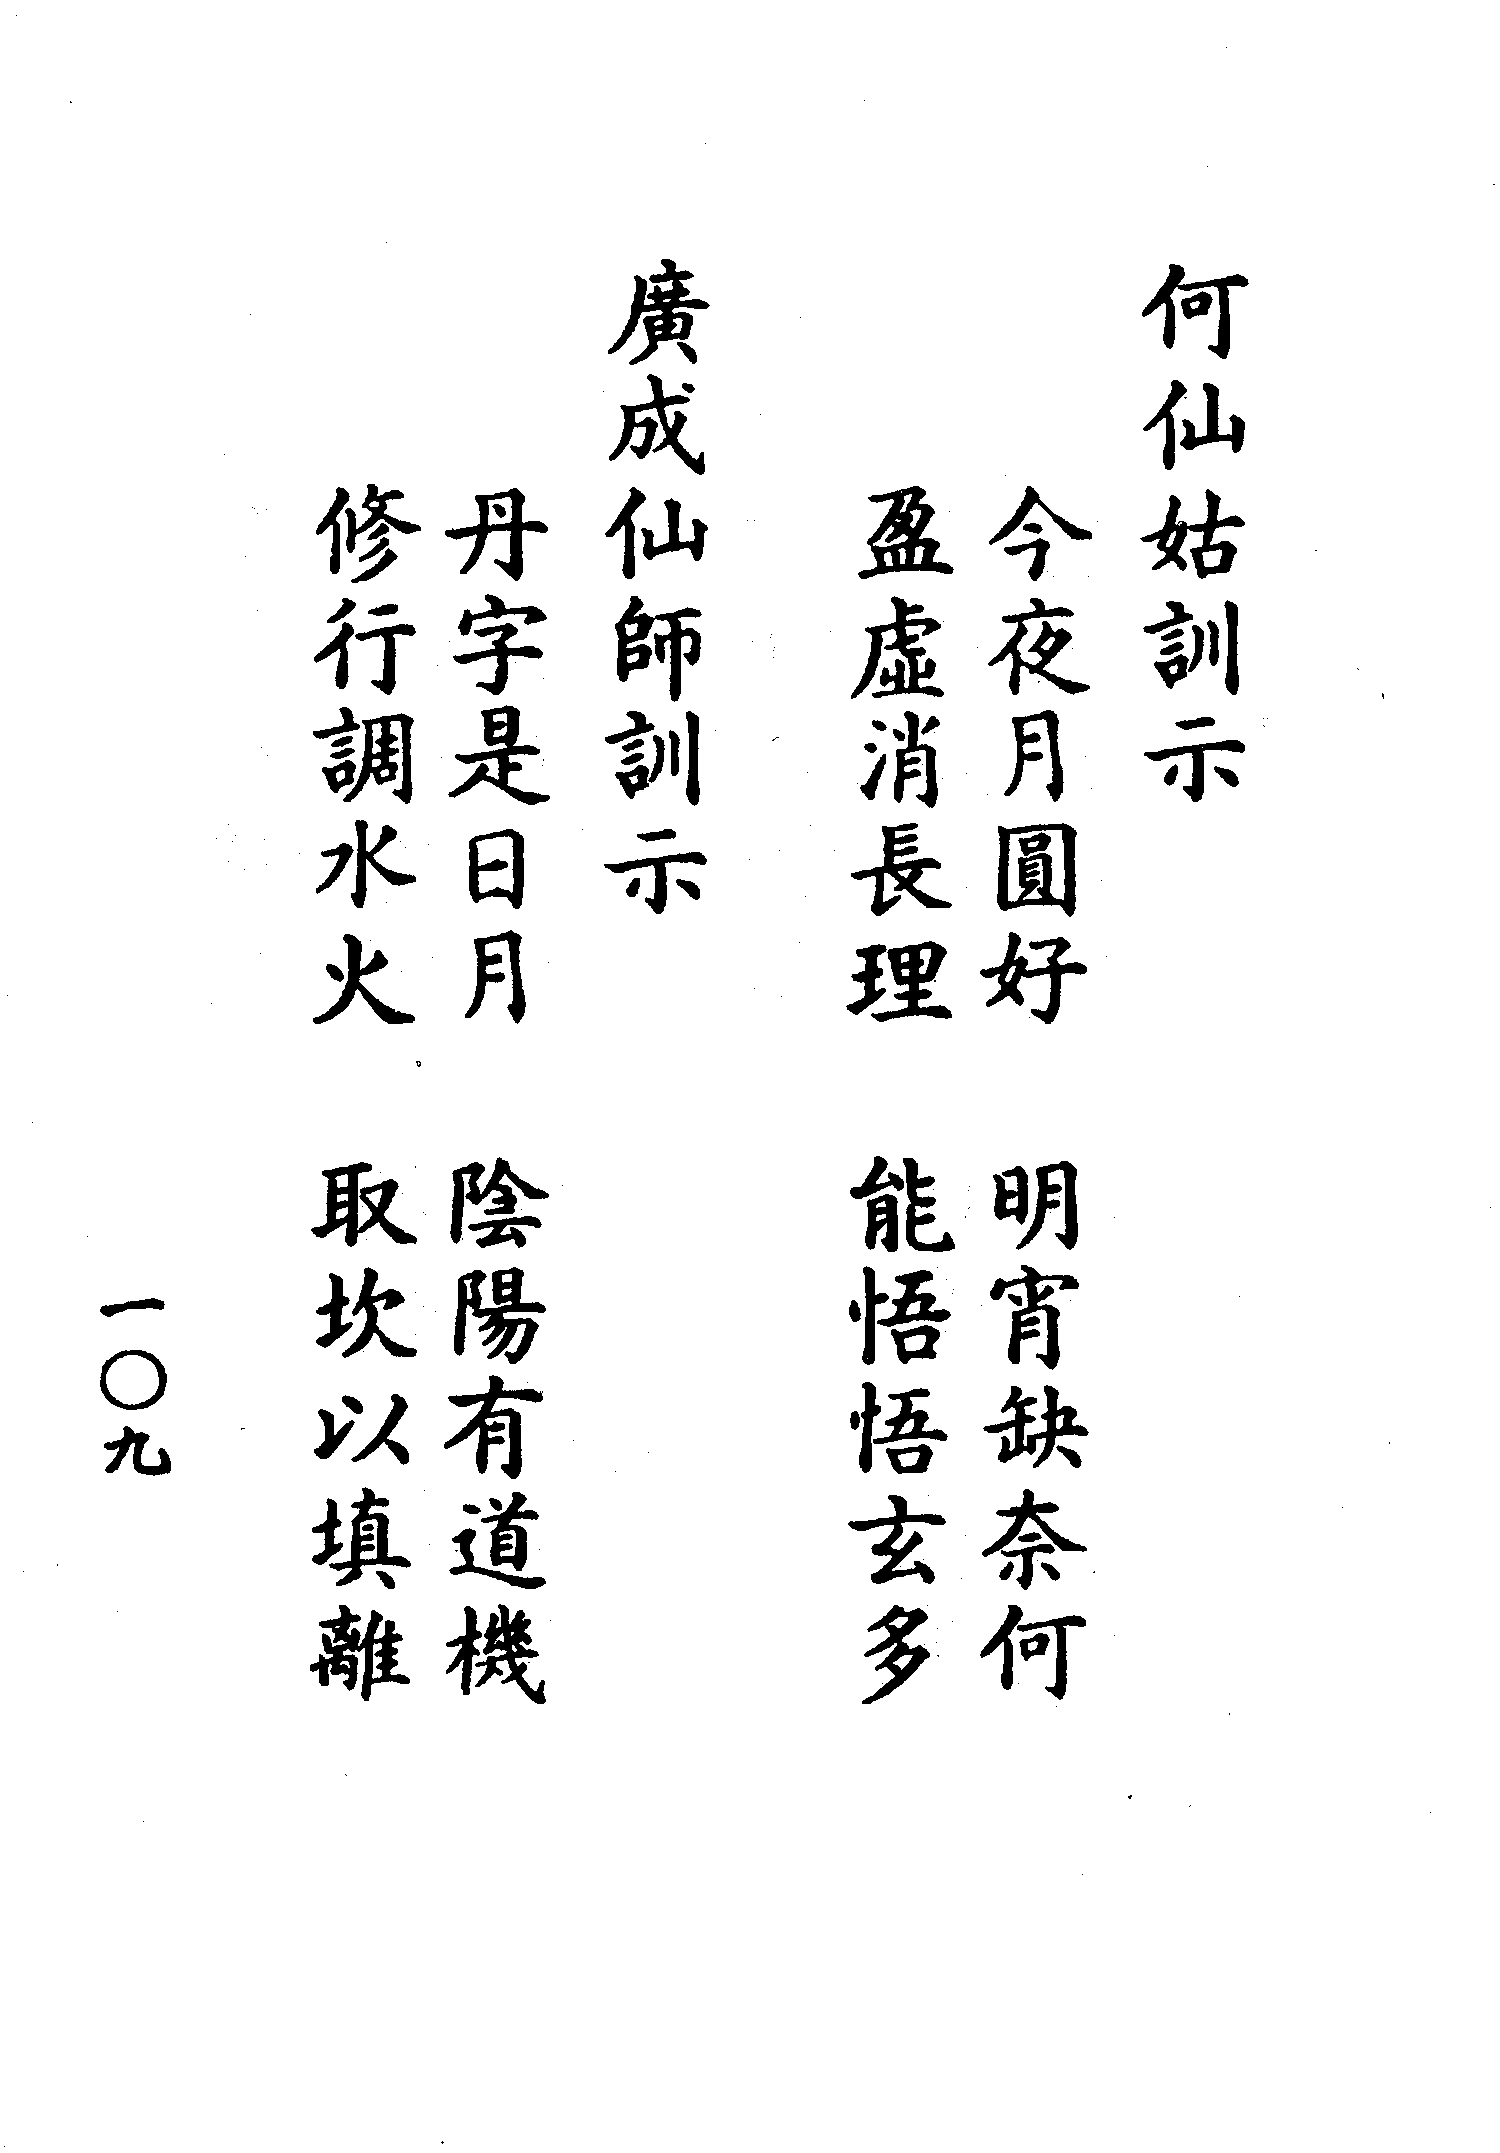 何仙姑訓示
今夜月圓好　明宵缺奈何
盈虛消長理　能悟悟玄多
廣成仙師訓示
丹字是日月　陰陽有道機
修行調水火　取坎以填離
一〇九